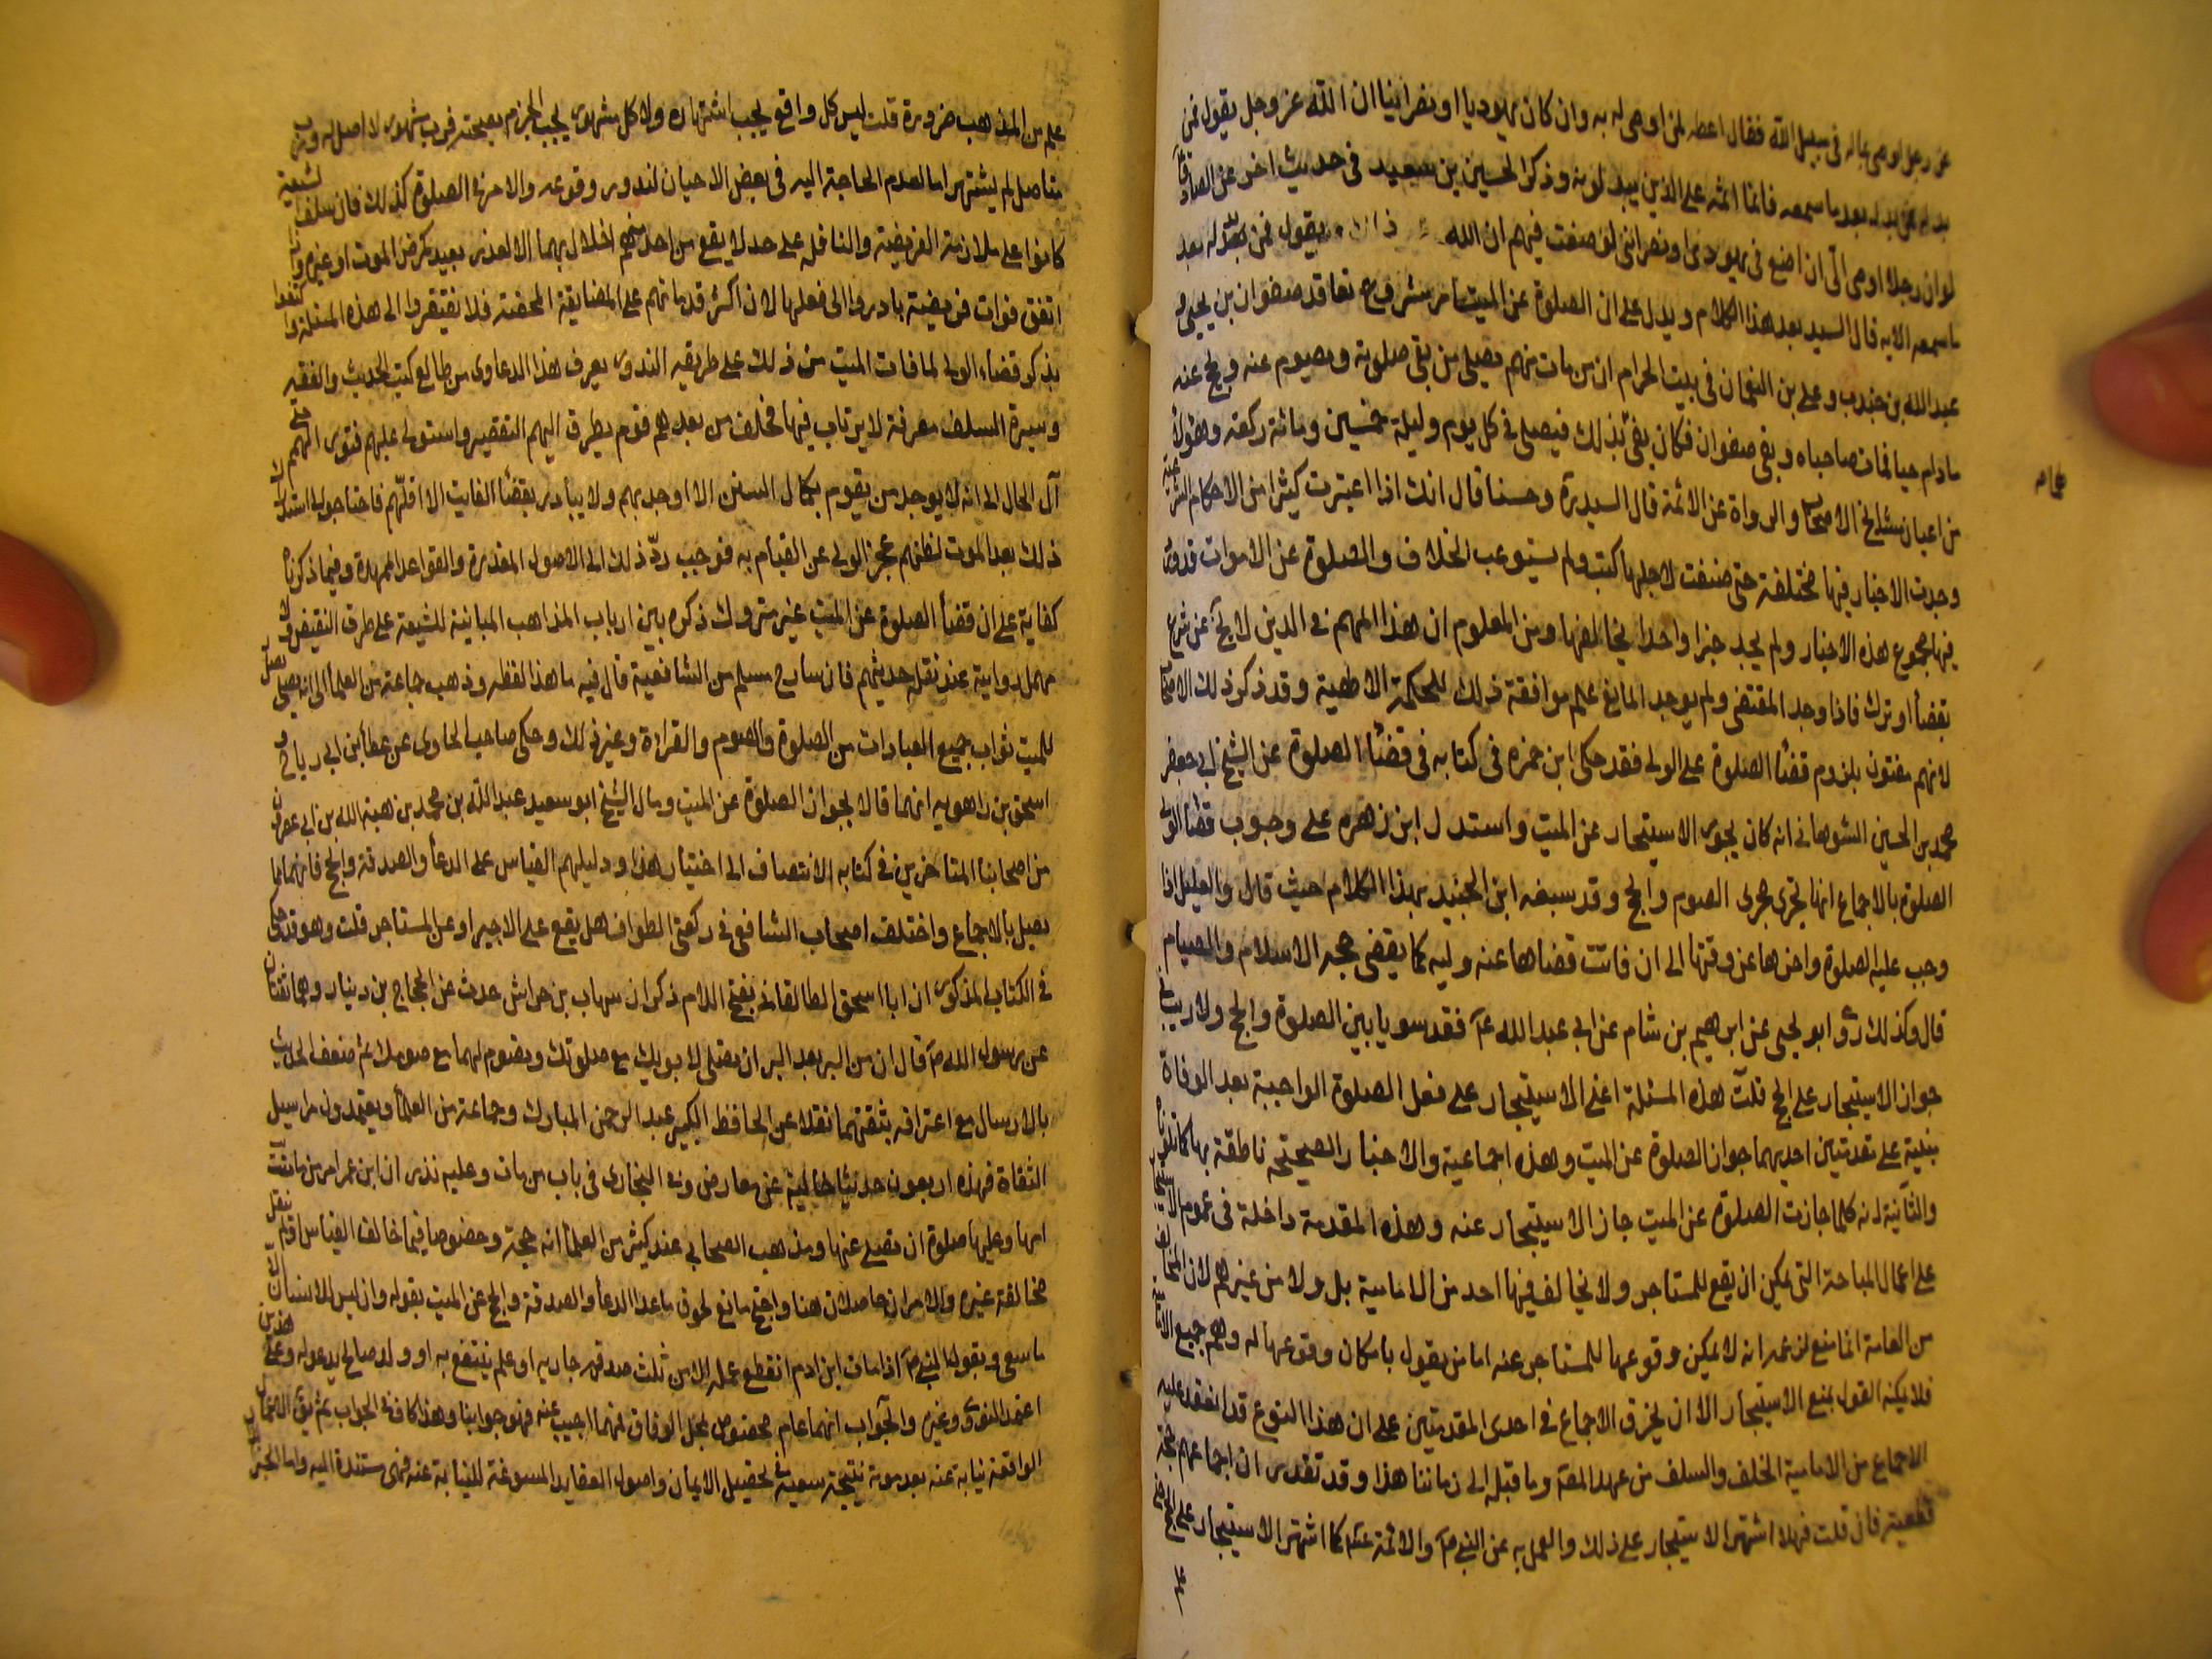 عن رجل اوصى بماله فى سبيل الله فقال اعطه لمن اوصى له به وان كان يهوديا او نصرانيا ان الله عز وجل يقول فمن
بدله بعد ما سمعه فانما اثمه على الذين يبدلونه وذكر الحسين بن سعيد فى حديث اخر عن الصادق
لو ان رجلا اوصى الى ان اضع فى يهودى او نصرانى لوضعت فيهم ان الله يقول فمن بدله بعد
ما سمعه الايه قال السيد بعد هذا الكلام ويدل على ان الصلوة عن الميت امر مشروع تعاقد صفوان بن يحيى و
عبد الله بن جندب وعلى بن النعمان فى بيت الحرام ان من مات منهم يصلى من بقى صلوته ويصوم عنه ويحج عنه
ما دام حيا فمات صاحباه وبقى صفوان فكان يفى بذلك فيصلى فى كل يوم وليلة خمسين ومائة ركعة وهؤلاء
من اعيان مشايخ الاصحاب والرواة عن الائمة قال السيد ره وحسنا قال انك اذا اعتبرت كثيرا من الاحكام الشرعية
وجدت الاخبار فيها مختلفة حتى صنفت لاجلها كتب ولم يستوعب الخلاف والصلوة عن الاموات قد ورد
فيها مجموع هذه الاخبار ولم يجد خبرا واحدا يخالفها ومن المعلوم ان هذا المهم فى الدين لا يخ عن شرع
بقضاء او ترك فاذا وجد المقتضى ولم يوجد المانع علم موافقة ذلك للحكمة الالهية وقد ذكر ذلك الاصحاب
لانهم مفتون بلزوم قضاء الصلوة على الولى فقد حكى ابن حمزه فى كتابه فى قضاء الصلوة عن الشيخ ابى جعفر
محمد بن الحسين الشوهانى انه كان يجوز الاستيجار عن الميت واستدل ابن زهره على وجوب قضاء الولى
الصلوة بالاجماع انها تجرى مجرى الصوم والحج وقد سبقه ابن الجنيد بهذا الكلام حيث قال والعليل اذا
وجب عليه الصلوة واخرها عن وقتها الى ان فاتت قضاها عنه وليه كما يقضى حجه الاسلام والصيام
قال وكذلك روى ابو يحيى عن ابرهيم بن هشام عن ابى عبد الله عم فقد سويا بين الصلوة والحج ولا ريب فى
جواز الاستيجار على الحج قلت هذه المسئلة اعنى الاستيجار على فعل الصلوة الواجبة بعد الوفاة
مبنية على مقدمتين احديهما جواز الصلوة عن الميت وهذه اجماعية والاخبار الصحيحة ناطقة بها كما تلوناه
والثانية انه كلما جازت الصلوة عن الميت جاز الاستيجار عنه وهذه المقدمة داخلة فى عموم الاستيجار
على اعمال المباحة التى يمكن ان يقع للمستاجر ولا يخالف فيها احد من الامامية بل ولا من غيرهم لان المخالف
من العامة انما منع لزعمه انه لا يمكن وقوعها للمستاجر عنه اما من يقول بامكان وقوعها له وهم جميع الامامية
فلا يمكنه القول بمنع الاستيجار الا ان يخرق الاجماع فى احدى المقدمتين على ان هذا النوع قد انعقد عليه
الاجماع من الامامية الخلف والسلف من عهد المصنف وما قبله الى زماننا هذا وقد تقدم ان اجماعهم حجة
قطعية فان قلت فهلا اشتهر الاستيجار على ذلك والعمل به عن النبى ص والائمة ع كما اشتهر الاستيجار على الحج حتى
علم من المذهب ضرورة قلت ليس كل واقع يجب اشتهاره ولا كل مشهور يجب الجزم بصحته فرب مشهور لا اصل له ورب
متاصل لم يشتهر اما لعدم الحاجة اليه فى بعض الاحيان لندور وقوعه والامر فى الصلوة كذلك فان سلف الشيعة
كانوا على ملازمة الفريضة والنافلة على حد لا يقع من احد منهم اخلال بهما الا لعذر بعيد كمرض الموت او غيره واذا
اتفق فوات فريضة بادروا الى فعلها لان اكثر قدمائهم على المضايقة المحضة فلا يفتقروا الى هذه المسئلة واكتفوا
بذكر قضاء الولى لما فات الميت من ذلك على طريقه الندور يعرف هذا الدعاوى من طالع كتب الحديث والفقه
وسيرة السلف معرفة لا يرتاب فيها فخلف من بعدهم قوم تطرق اليهم التقصير واستولى عليهم فتور الهمم حتى
آل الحال الى انه لا يوجد من يقوم بكمال السنن الا اوحديهم ولا يبادر بقضاء الفايت الا اقلهم فاحتاجوا الى استدراك
ذلك بعد الموت لظنهم عجز الولى عن القيام به فوجب رد ذلك الى الاصول المقررة والقواعد الممهدة وفيما ذكرناه
كفاية على ان قضاء الصلوة عن الميت غير متروك ذكره بين ارباب المذاهب المباينة للشيعة على طرف النقيض ولا
مهمل روايته عند نقله حديثهم فان شارح مسلم من الشافعية قال فيه ما هذا لفظه وذهب جماعة من العلماء الى انه يصل
للميت ثواب جميع العبادات من الصلوة والصوم والقراءة وغير ذلك وحكى صاحب الحاوى عن عطاء بن ابى رباح و
اسحق بن راهويه انهما قالا بجواز الصلوة عن الميت ومال الشيخ ابو سعيد عبد الله بن محمد بن هبة الله بن ابى عصرون
من اصحابنا المتاخرين فى كتابه الانتصاف الى اختيار هذا ودليلهم القياس على الدعاء والصدقة والحج فانهما
يصل بالاجماع واختلف اصحاب الشافعى فى ركعتى الطواف هل يقع على الاجير او عن المستاجر قلت وهو قد حكى
فى الكتاب المذكور ان ابا اسحق الطالقانى بفتح اللام ذكر ان شهاب بن خراش حدث عن الحجاج بن دينار وهما ثقتان
عن رسول الله ص قال ان من البر بعد البر ان يصلى لابويك مع صلوتك ويصوم لهما مع صومك ثم ضعف الحديث
بالارسال مع اعترافه بثقتهما نقلا عن الحافظ الكبير عبد الرحمن المبارك وجماعة من العلماء ويعتمدون مراسيل
الثقاة فهذه اربعون حديثا خالية عن معارض وفى البخارى فى باب من مات وعليه نذر ان ابن عمر امر من ماتت
امها وعليها صلوة ان تصلى عنها ومذهب الصحابى عند كثير من العلماء انه حجة وخصوصا فيما خالف القياس
مخالفة غيره والامران حاصلان هنا واحتج مانع لحوق ما عدا الدعاء والصدقة والحج عن الميت بقوله وان ليس للانسان الا
ما سعى وبقول النبى ص اذا مات ابن ادم انقطع عمله الا من ثلث صدقه جاريه او علم ينتفع به او ولد صالح يدعو له وعلى هذين
اعتمد النووى وغيره والجواب انهما عام مخصوص بمحل الوفاق فمهما اجيب عنه فهو جوابنا وهذا كاف فى الجواب ثم
الواقعة نيابة عنه بعد موته نتيجة سعيه فى تحصيل الايمان واصول العقايد المسوغة للنيابة عنه فهى مستندة اليه واما الخبر